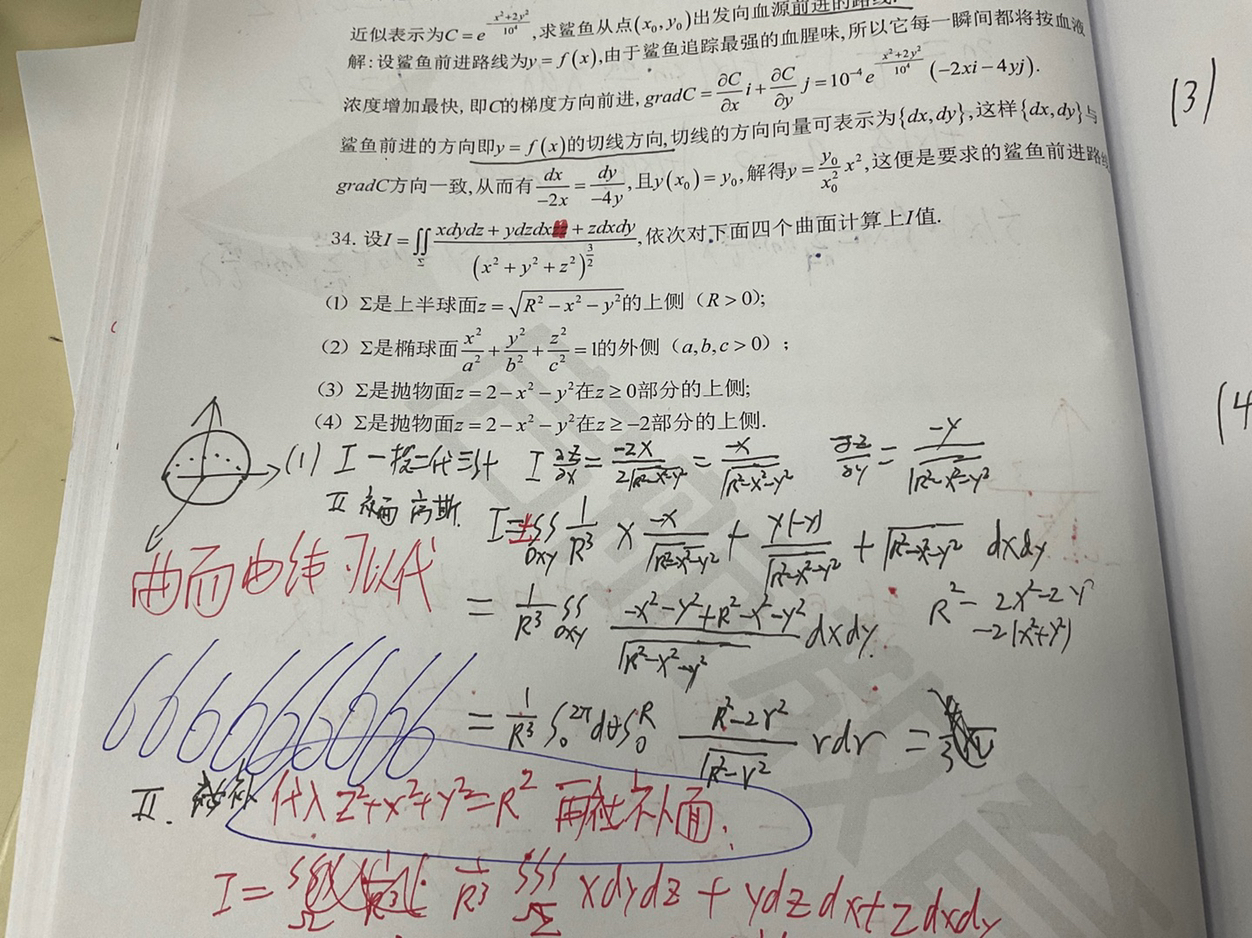 近似表示为C=e^{x²+2y²/10⁴},求鲨鱼从点(x₀,y₀)出发向血源前进的路线.
解:设鲨鱼前进路线为y=f(x),由于鲨鱼追踪最强的血腥味,所以它每一瞬间都将按血液
浓度增加最快,即C的梯度方向前进,gradC=∂C/∂x i+∂C/∂y j=10⁻⁴e^{x²+2y²/10⁴}(-2xi-4yj).
鲨鱼前进的方向即y=f(x)的切线方向,切线的方向向量可表示为{dx,dy},这样{dx,dy}与
gradC方向一致,从而有dx/-2x=dy/-4y,且y(x₀)=y₀,解得y=y₀/x₀² x²,这便是要求的鲨鱼前进路
34. 设I=∬_Σ xdydz+ydzdx+zdxdy/(x²+y²+z²)^{3/2},依次对下面四个曲面计算上I值.
(1) Σ是上半球面z=√R²-x²-y²的上侧(R>0);
(2) Σ是椭球面x²/a²+y²/b²+z²/c²=1的外侧(a,b,c>0);
(3) Σ是抛物面z=2-x²-y²在z≥0部分的上侧;
(4) Σ是抛物面z=2-x²-y²在z≥-2部分的上侧.
(1) I 一投二代三计 I ∂z/∂x=-2x/2√R²-x²-y²=-x/√R²-x²-y² ∂z/∂y=-y/√R²-x²-y²
II 补面 高斯.
I=±∬_{Dxy} 1/R³ x -x/√R²-x²-y² + y(-y)/√R²-x²-y² + √R²-x²-y² dxdy
曲面曲线可以代
= 1/R³ ∬_{Dxy} -x²-y²+R²-x²-y²/√R²-x²-y² dxdy.
R²-2x²-2y²
-2(x²+y²)
66666666
= 1/R³ ∫₀^{2π}dθ∫₀^R R²-2r²/√R²-r² rdr =
II. 代入 z²+x²+y²=R² 再补面.
I= 1/R³ ∭ xdydz + ydzdx+zdxdy
(3)
(4